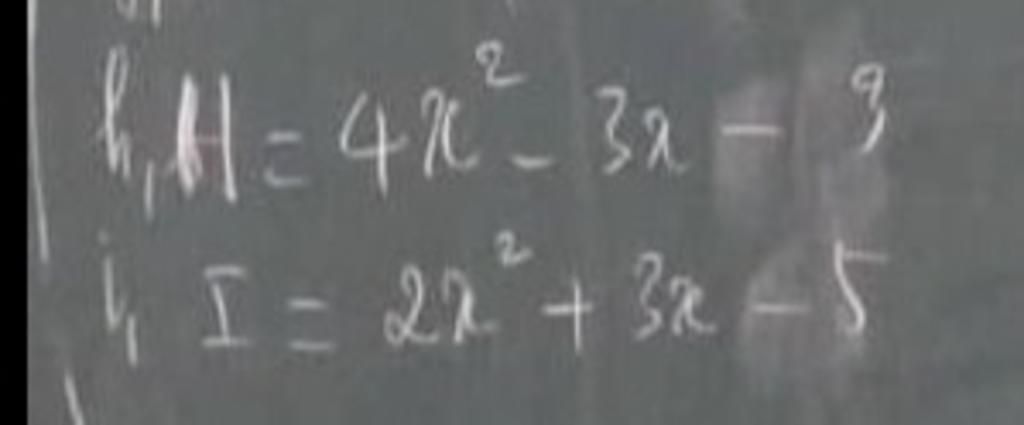 h, H = 4x² - 3x - 9
i, I = 2x² + 3x - 5